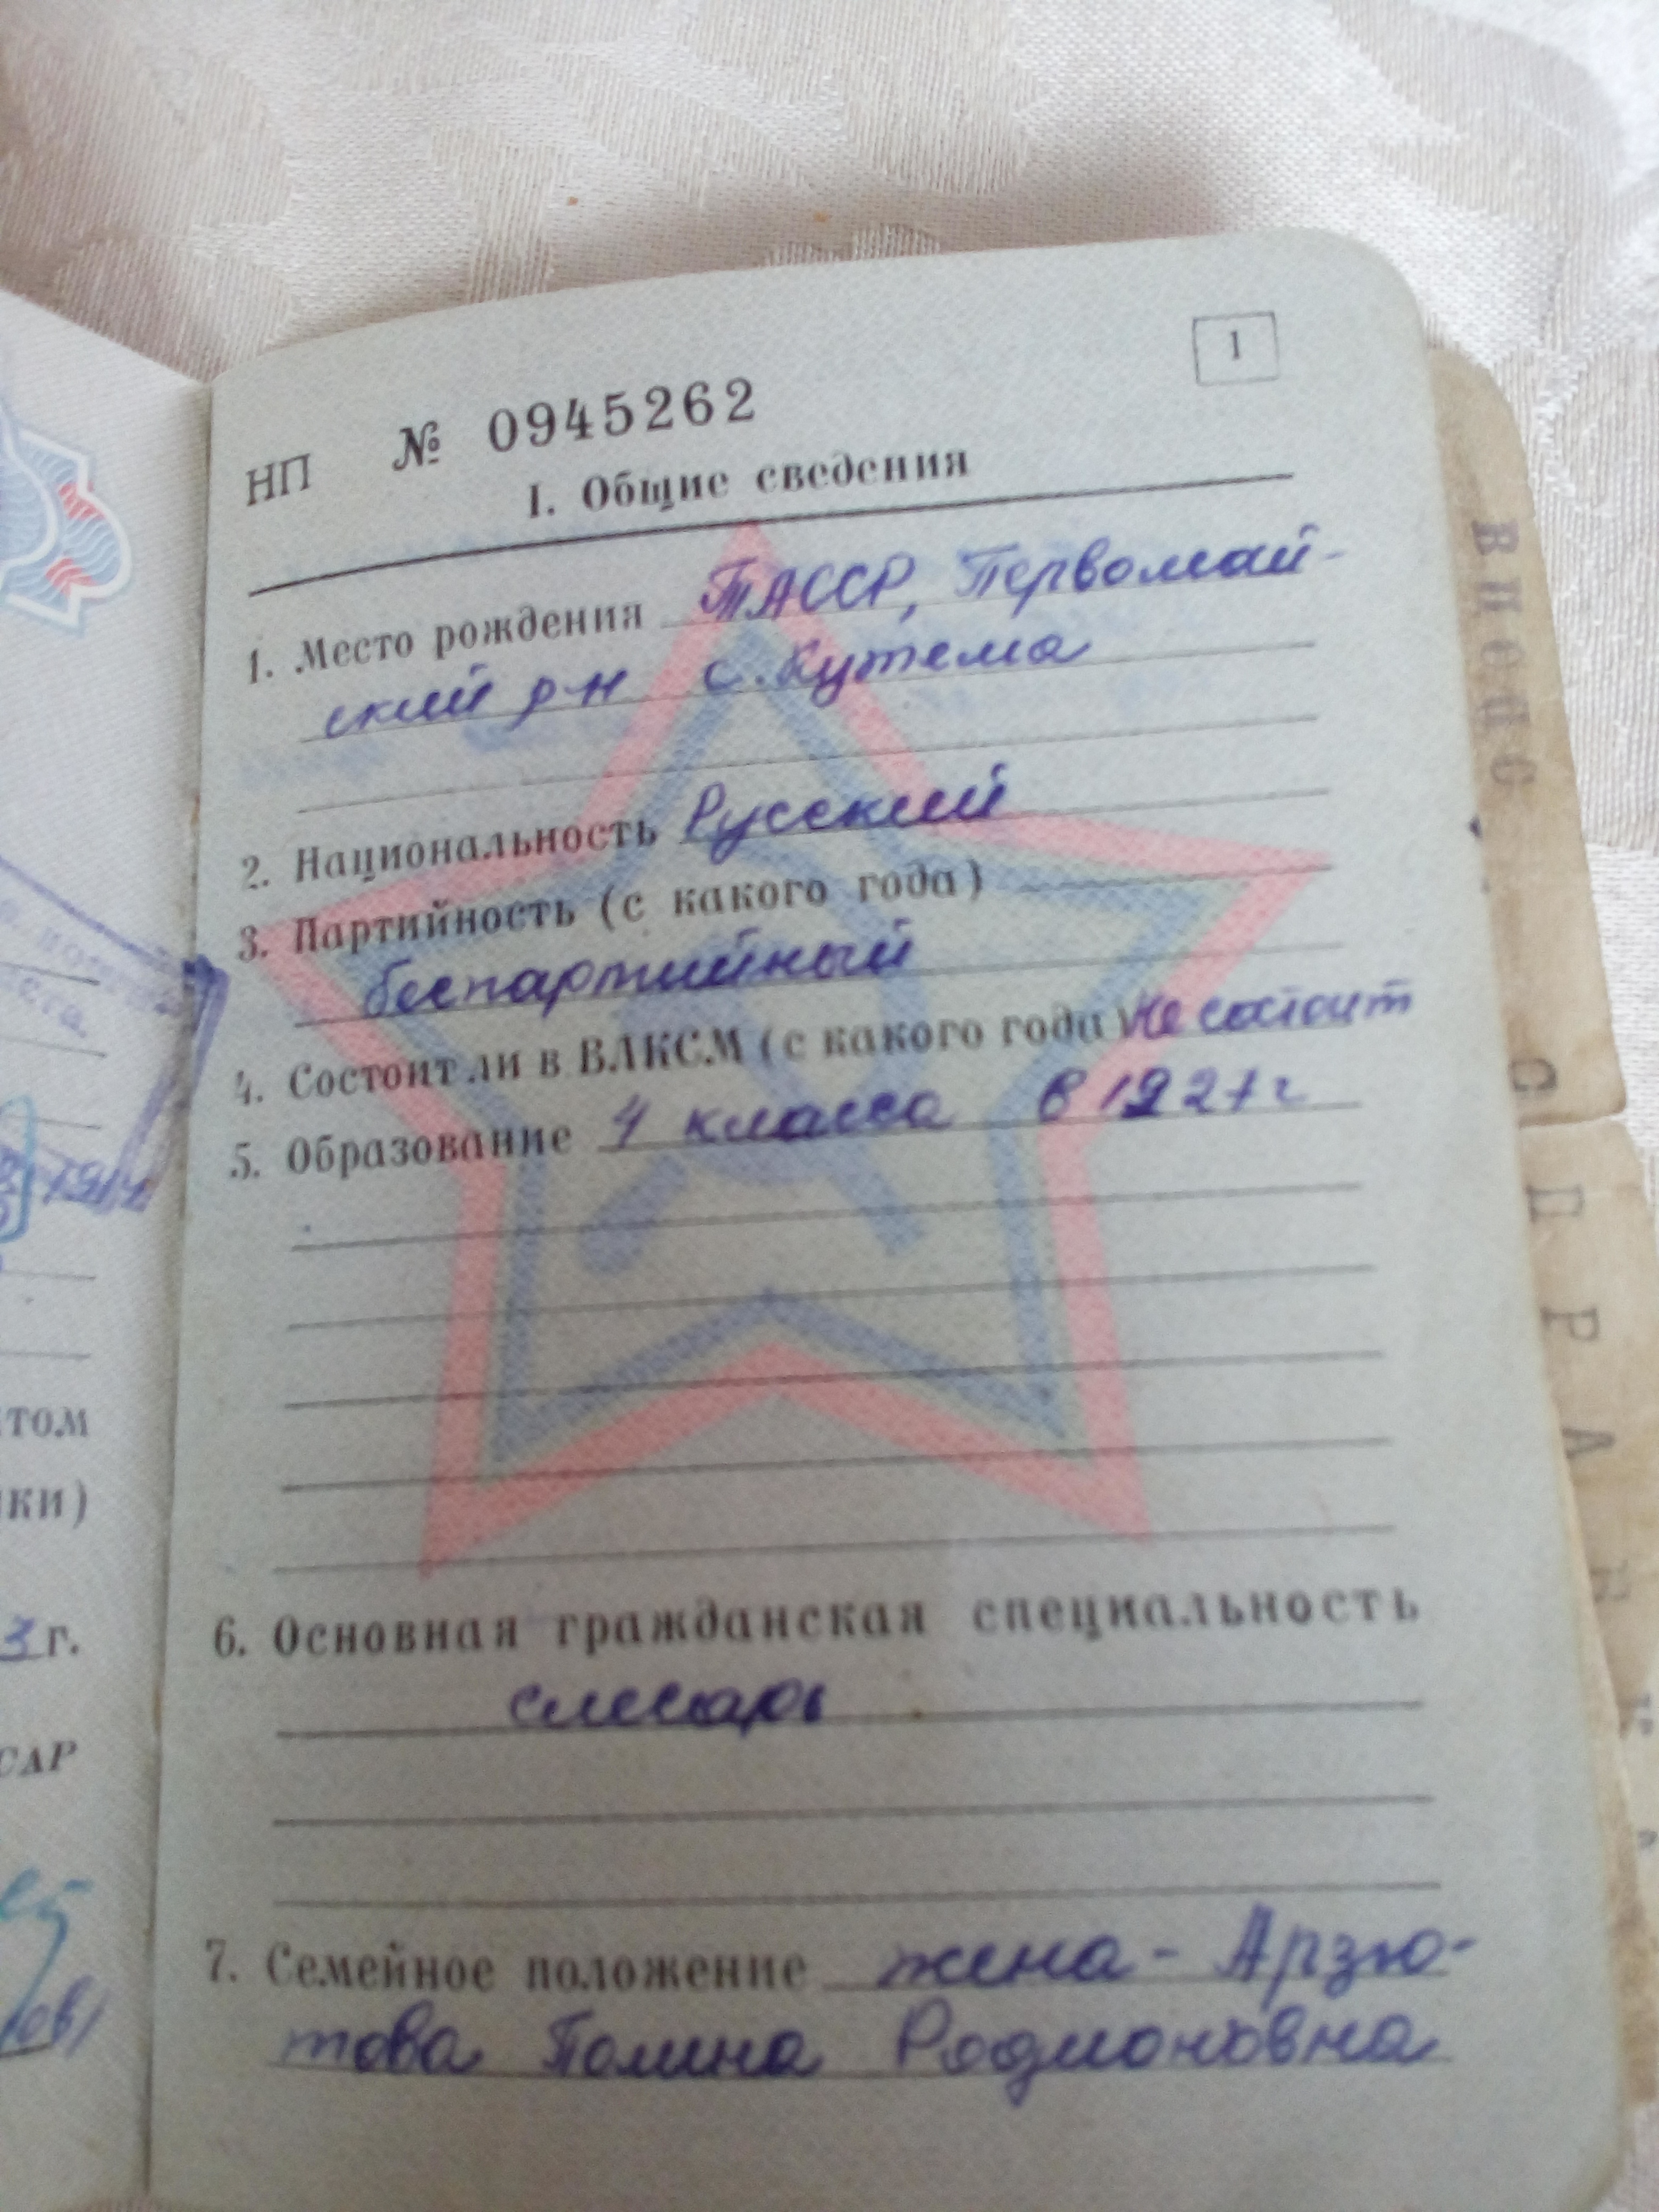 1
НП № 0945262
I. Общие сведения
1. Место рождения ТАССР, Первомай-
ский р-н с. Кутема
2. Национальность Русский
3. Партийность (с какого года)
беспартийный
4. Состоит ли в ВЛКСМ (с какого года) Не состоит
5. Образование 4 класса в 1927 г
6. Основная гражданская специальность
слесарь
7. Семейное положение жена - Арзю-
това Полина Родионовна
том
ки)
3 г.
САР